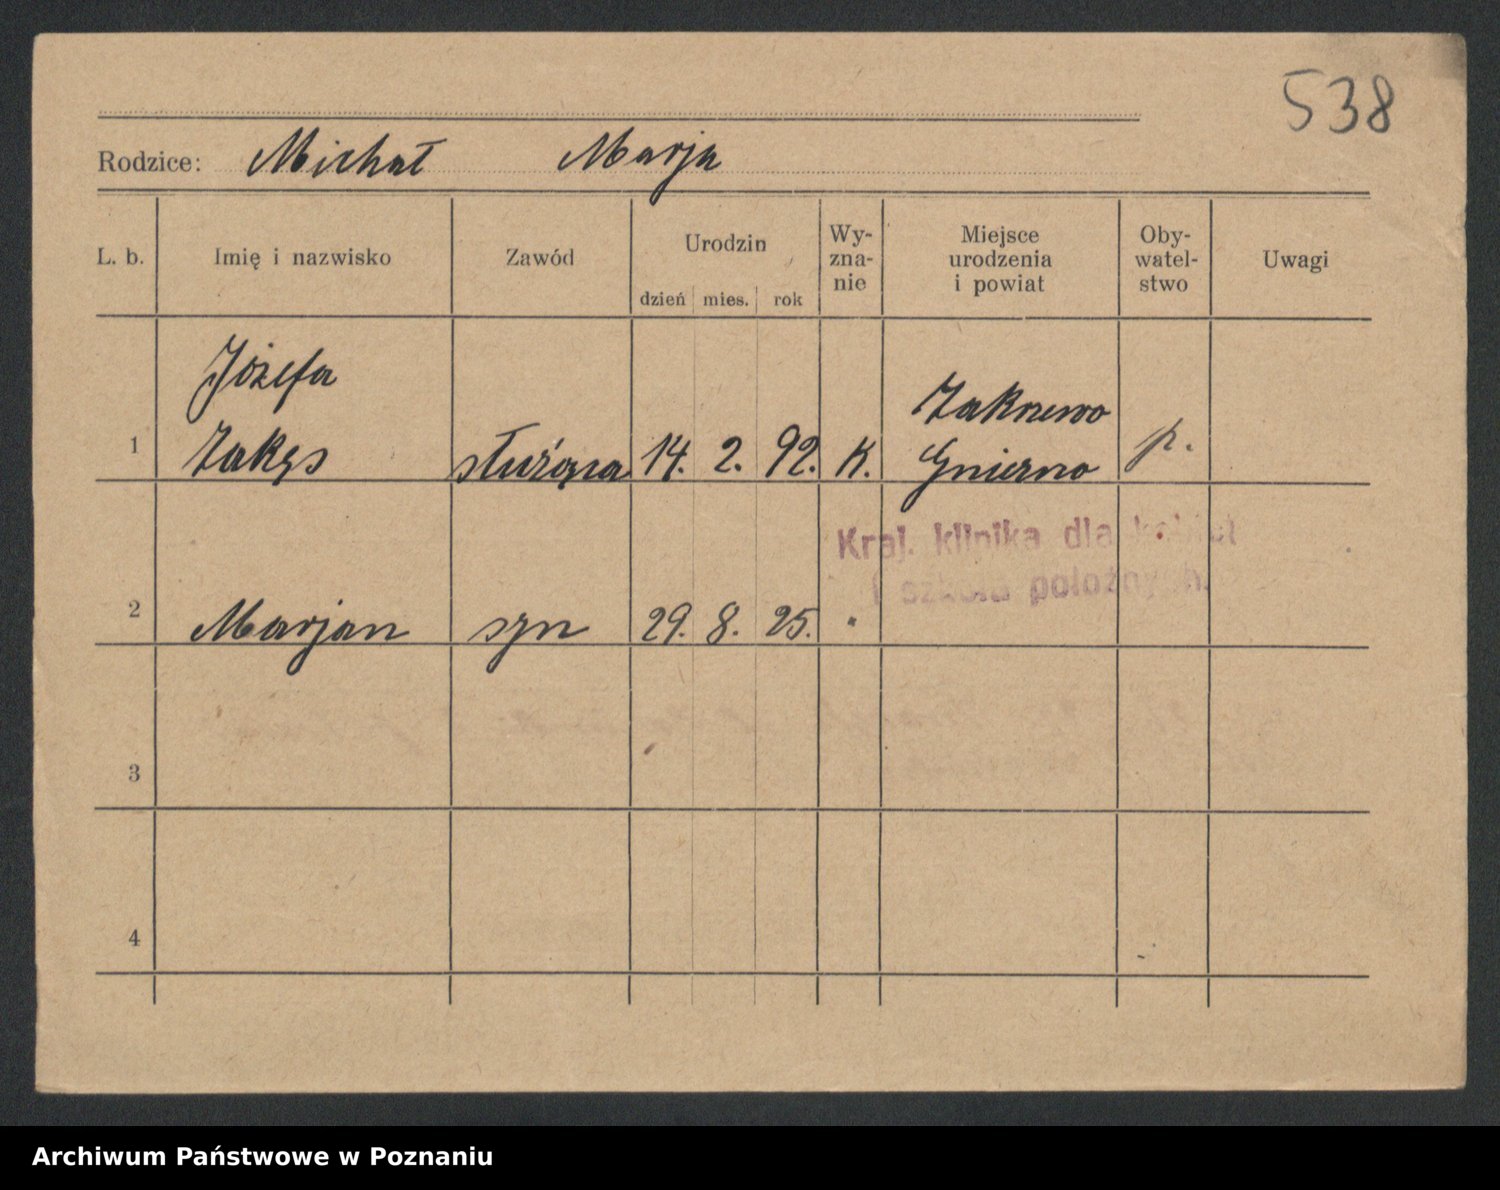 538
Rodzice: Michał Marja
L. b. Imię i nazwisko Zawód Urodzin dzień mies. rok Wy-znanie Miejsce urodzenia i powiat Oby-watel-stwo Uwagi
Józefa
Zakęs
1 służąca 14. 2. 92. K. Zakrzewo
Gniezno p.
Kraj. klinika dla kobiet
i szkoła położnych.
2 Marjan syn 29. 8. 25. "
3
4
Archiwum Państwowe w Poznaniu